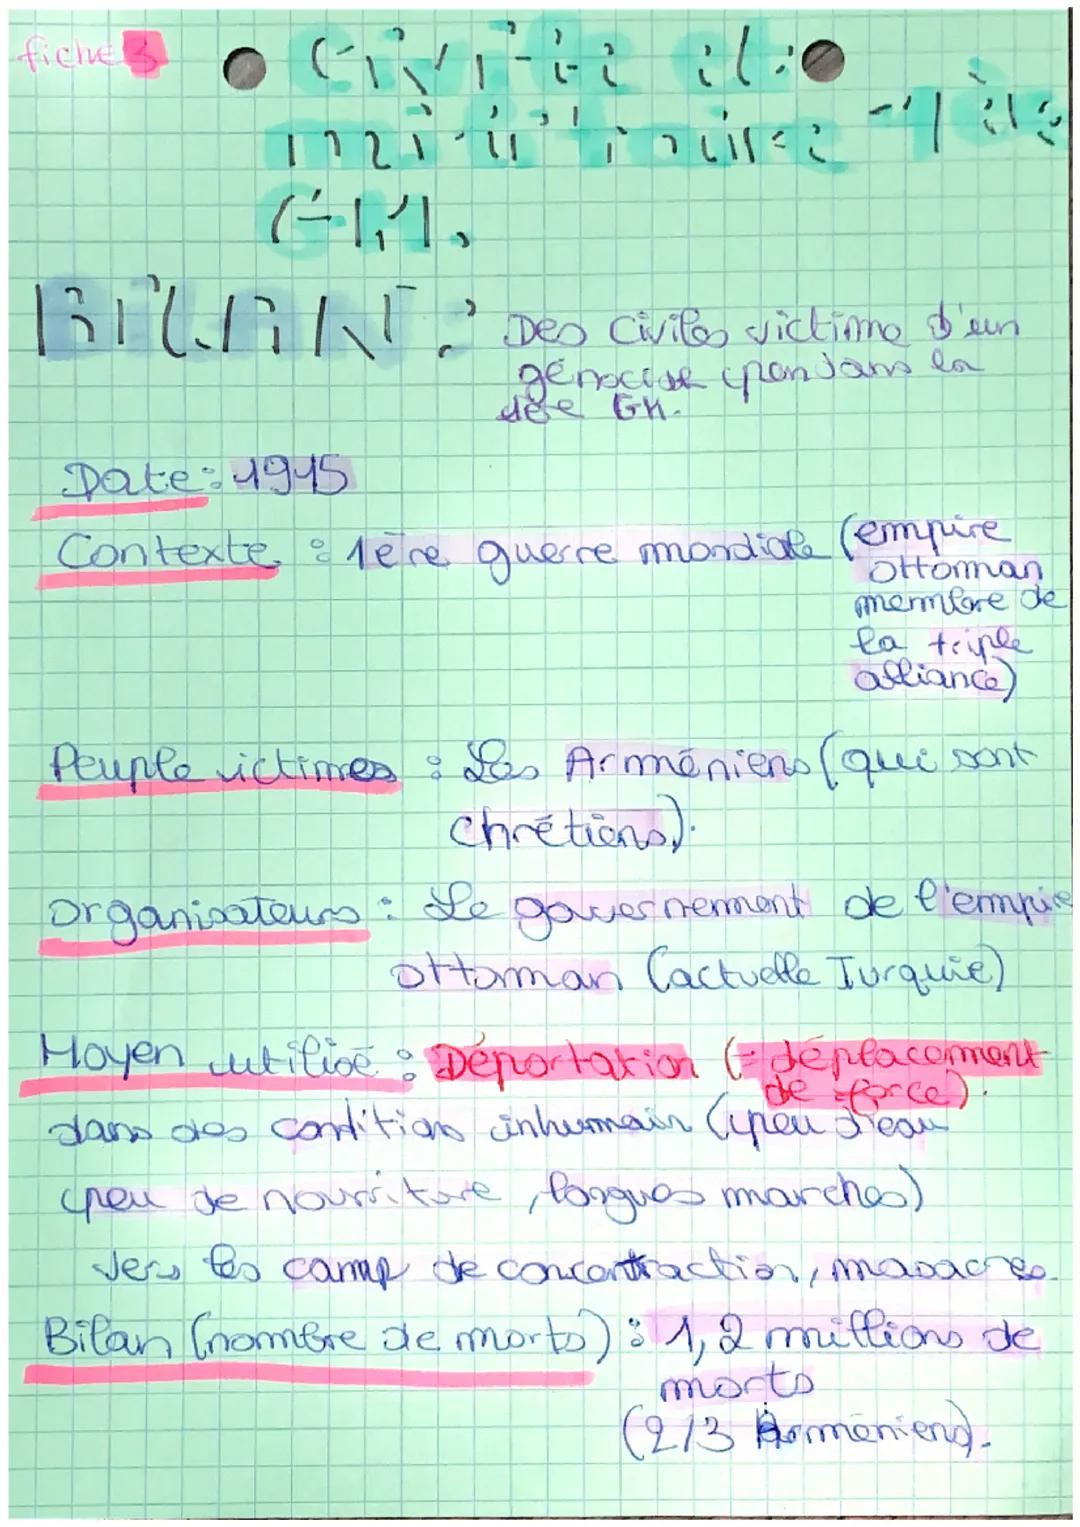 fiche 3
Des Civiles victime d'un
génocide pendans la
1ère GM.
Date : 1915
Contexte : 1ère guerre mondiale (empire
ottoman
membre de
la triple
alliance)
Peuple victimes : Les Arméniens (qui sont
chrétiens).
Organisateurs : Le gouvernement de l'empire
ottoman (actuelle Turquie)
Moyen utilisé : Déportation (= déplacement
de force).
dans des condition inhumain (peu d'eau
peu de nourriture, longues marches)
vers les camp de concentraction, masacres.
Bilan (nombre de morts) : 1,2 millions de
morts
(2/3 Arméniens).